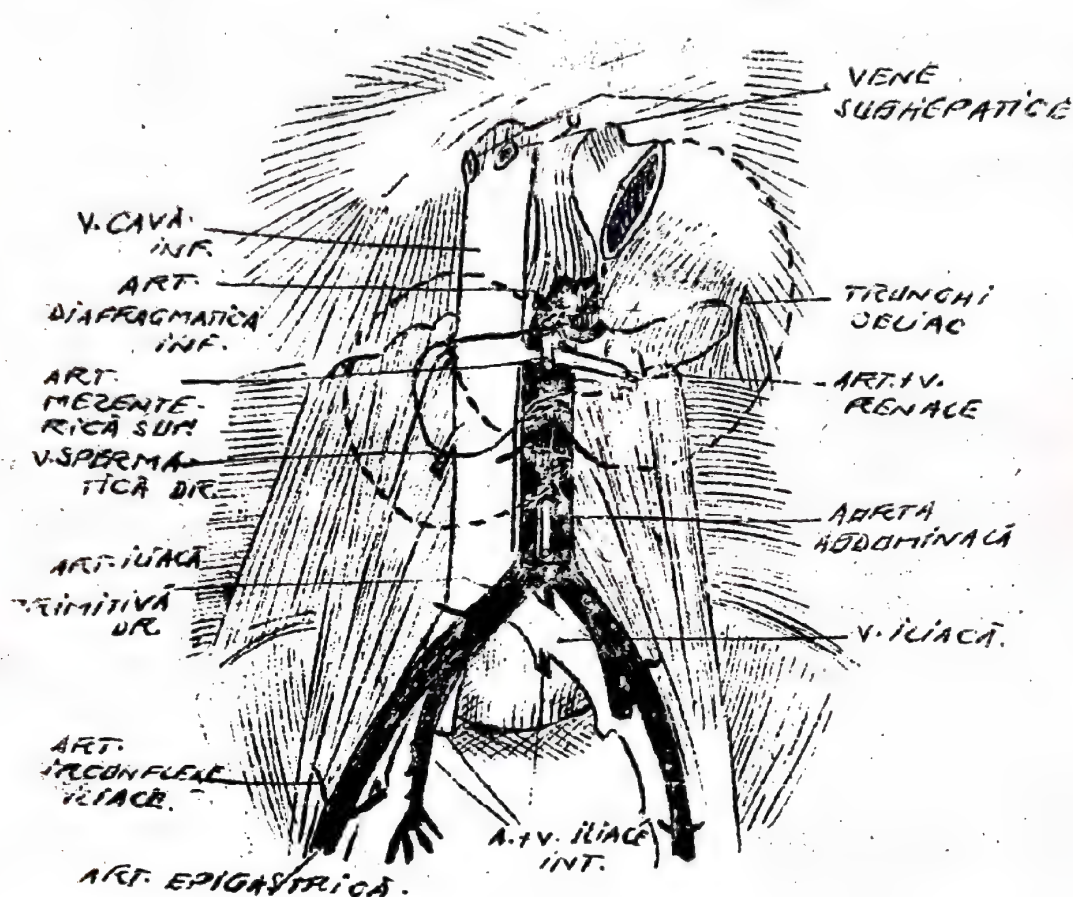 VENE
SUBHEPATICE
V. CAVĂ
INF.
ART.
DIAFRAGMATICA
INF.
TRUNCHI
CELIAC
ART.
MEZENTE-
RICĂ SUP.
ART.+V.
RENALE
V. SPERMA-
TICĂ DR.
AORTA
ABDOMINALĂ
ART. ILIACĂ
PRIMITIVĂ
DR.
V. ILIACĂ.
ART.
CIRCONFLEXE
ILIACE.
A.+V. ILIACE
INT.
ART. EPIGASTRICĂ.